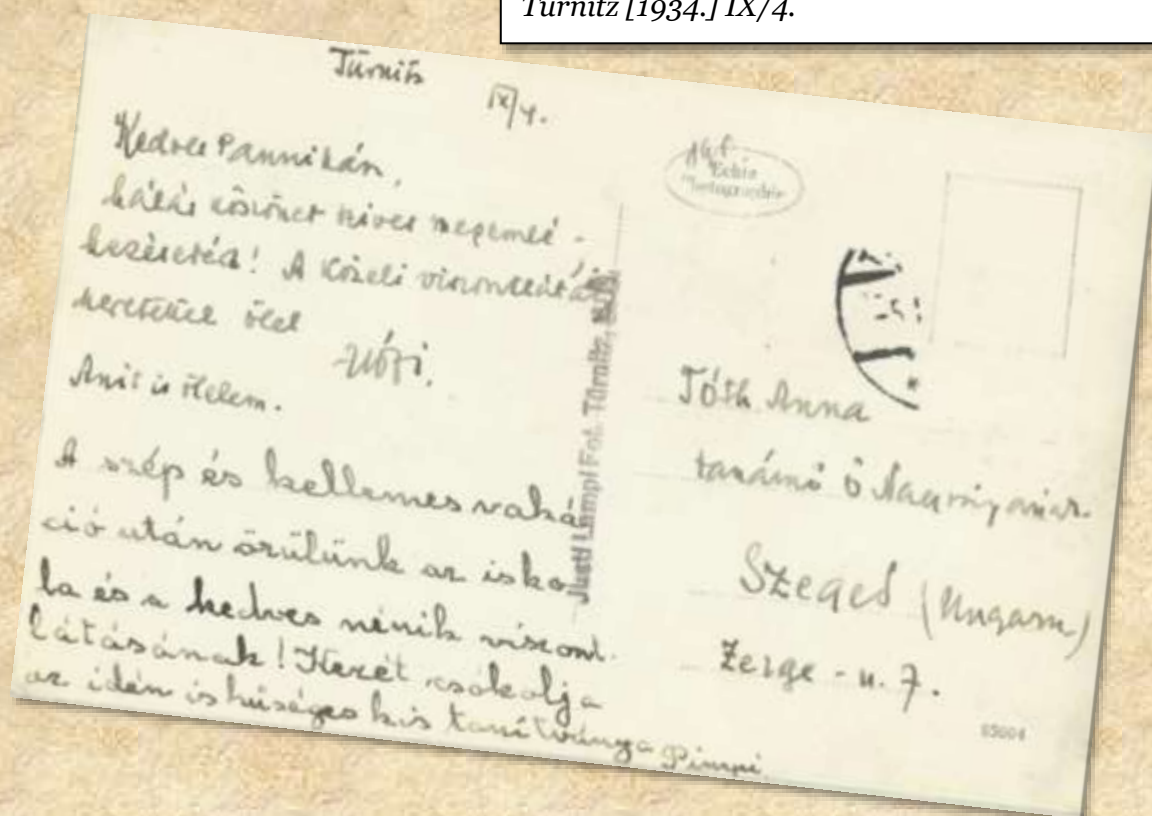 Türnitz [1934.] IX/4.
Türnitz
IX/4.
Kedves Pannikán,
hálás köszönet szives megemlé-
kezésetéd! A közeli viszontlátás
szeretettel ölel
Anit is ölelem.
A szép és kellemes vaká
ció után örülünk az isko
la és a kedves nénik viszont-
látásának! Kezét csókolja
az idén is hűséges kis tanítványa Pimpi
Justl Lampl Fot. Türnitz,
Echte
Photographie
Tóth Anna
tanárnő ő
Szeged (Ungarn)
Zerge - u. 7.